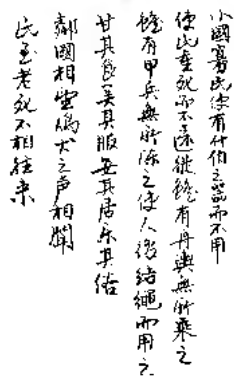 小國寡民使有什伯之器而不用
使民重死而不遠徙雖有舟輿無所乘之
雖有甲兵無所陳之使人復結繩而用之
甘其食美其服安其居樂其俗
鄰國相望鷄犬之声相聞
民至老死不相往来